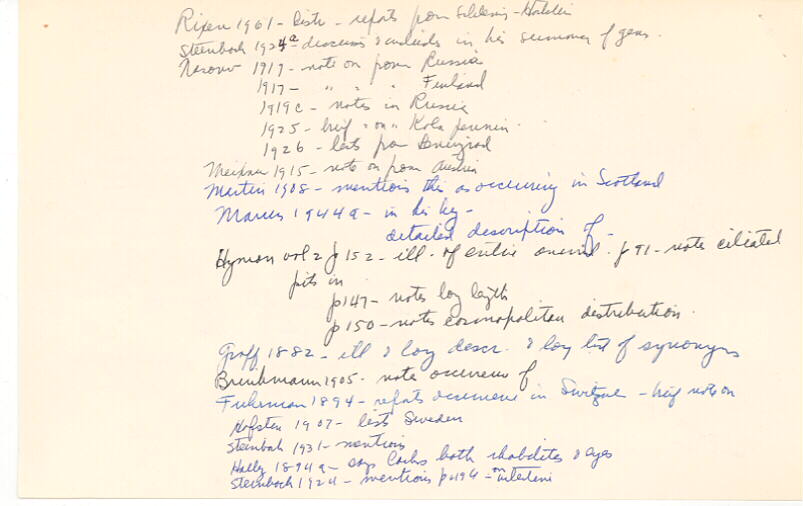 Rixen 1961 - Distr - reports from Schleswig-Holstein
Steinbock 1924a - discusses & includes in his summary of genus.
Nasonov 1919 - note on from Russia
1917 - " " " Finland
1919c - notes in Russia
1925 - brief " on " Kola penin.
1926 - lists from Leningrad
Meixner 1915 - note on from Austria
Martin 1908 - mentions this as occurring in Scotland
Marcus 1944a - in his key -
detailed description of -
Hyman vol 2 p 152 - ill. of entire animal. p 91 - notes ciliated
pits in
p 147 - notes log length
p 150 - notes cosmopolitan distribution.
Graff 1882 - ill & log descr. & log list of synonyms
Brinkmann 1905 - note occurrence of
Fuhrman 1894 - reports occurrence in - brief note on
Hofsten 1907 - lists Sweden
Steinbock 1931 - mentions
1894a - says lacks both rhabdites & eyes
Steinbock 1924 - mentions p 194 - on intestine